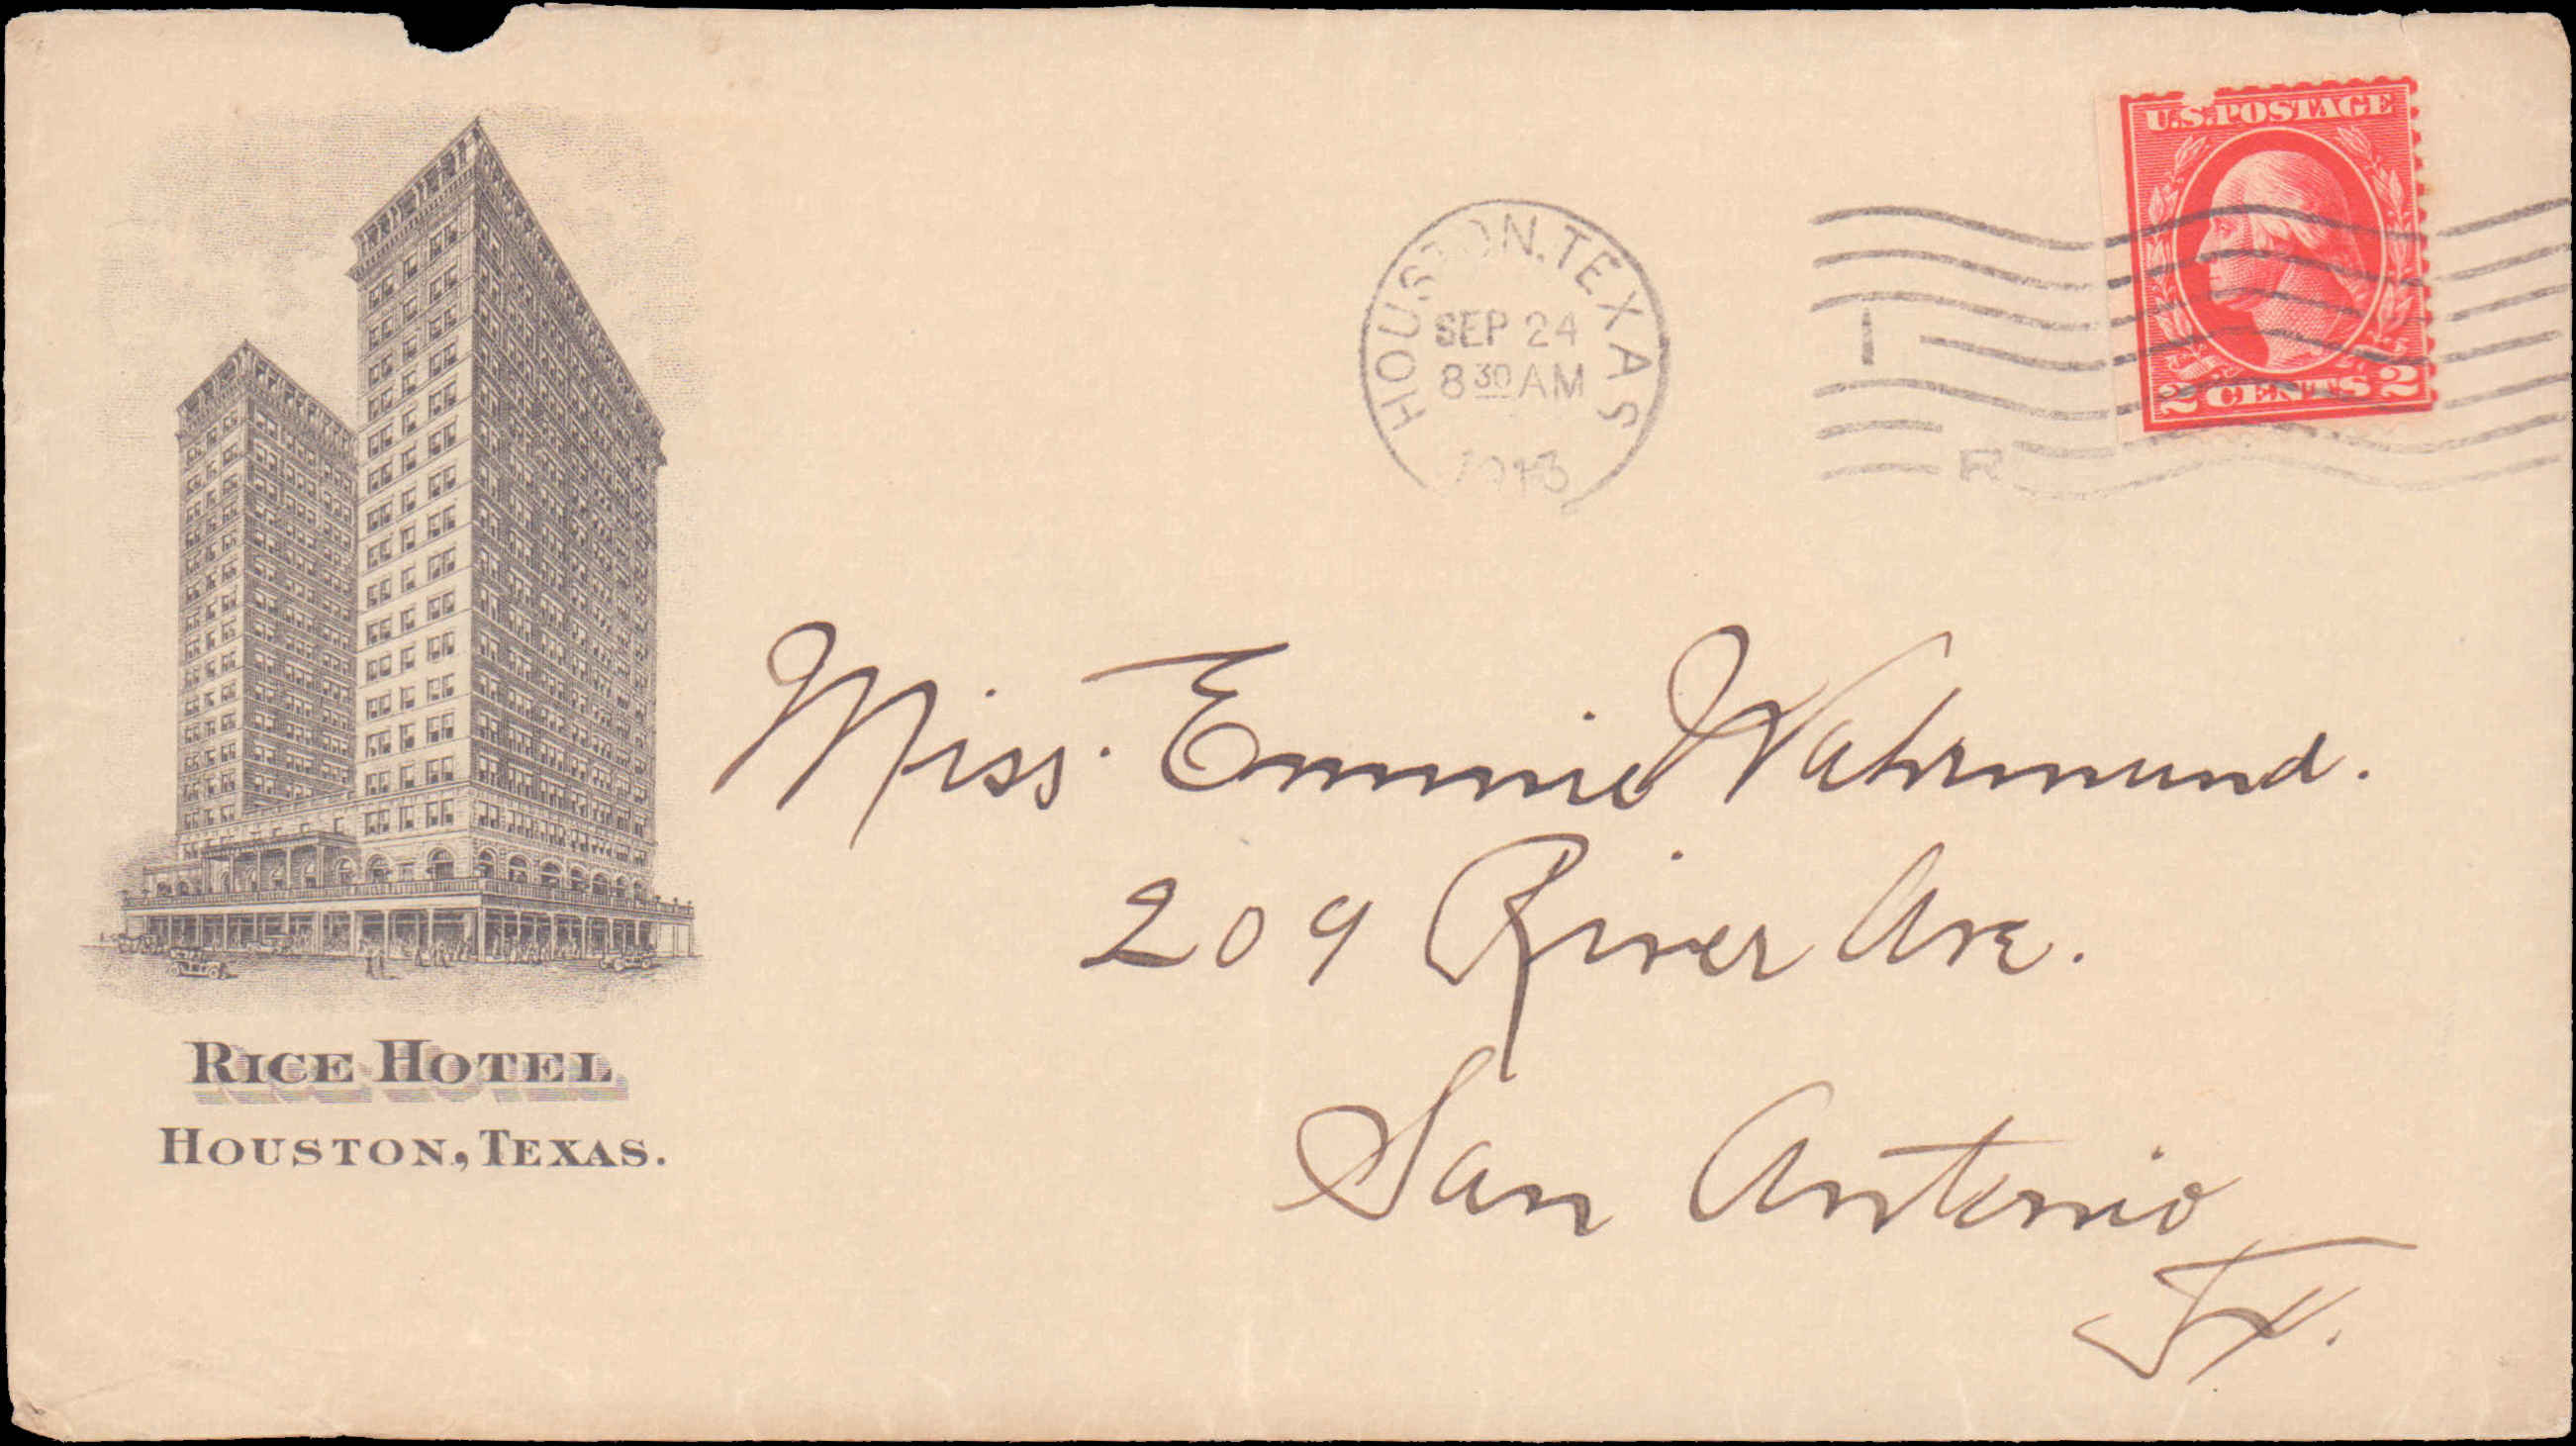 U.S. POSTAGE
2 CENTS 2
HOUSTON, TEXAS
SEP 24
8 30 AM
1913
1
R
Miss. Emmie Wahrmund.
209 River Ave.
San Antonio
Tx.
RICE HOTEL
HOUSTON, TEXAS.